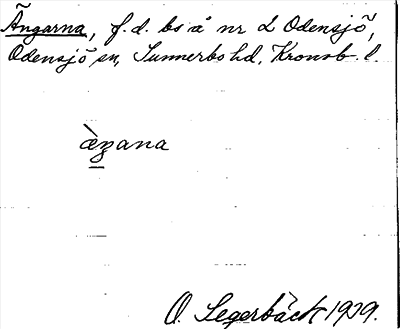 Ängarna, f. d. bs å nr 2 Odensjö,
Odensjö sn, Sunnerbo hd, Kronob. l.
æ̀ŋana
O. Segerbäck 1929.